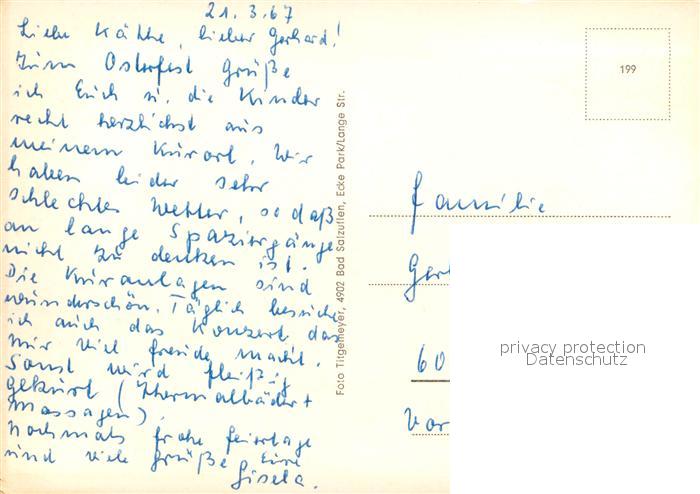 21.3.67
Liebe Käthe, lieber Gerhard!
Zum Osterfest Grüße
ich Euch u. die Kinder
recht herzlichst aus
meinem Kurort. Wir
haben leider sehr
schlechtes Wetter, so daß
an lange Spaziergänge
nicht zu denken ist.
Die Kuranlagen sind
wunderschön. Täglich besuche
ich auch das Konzert das
mir viel freude macht.
Sonst wird fleißig
gekurt (Thermalbäder +
Massagen).
Nochmals frohe feiertage
und viele Grüße Eure
Gisela.
Foto Titgemeyer, 4902 Bad Salzuflen, Ecke Park/Lange Str.
199
Familie
Ger
60
Vor
privacy protection
Datenschutz